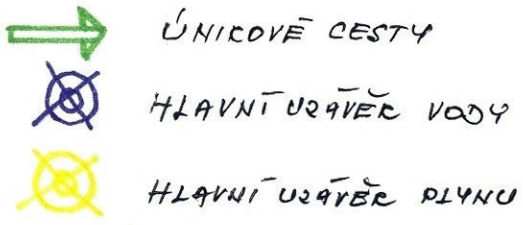 ÚNIKOVÉ CESTY
HLAVNÍ UZÁVĚR VODY
HLAVNÍ UZÁVĚR PLYNU